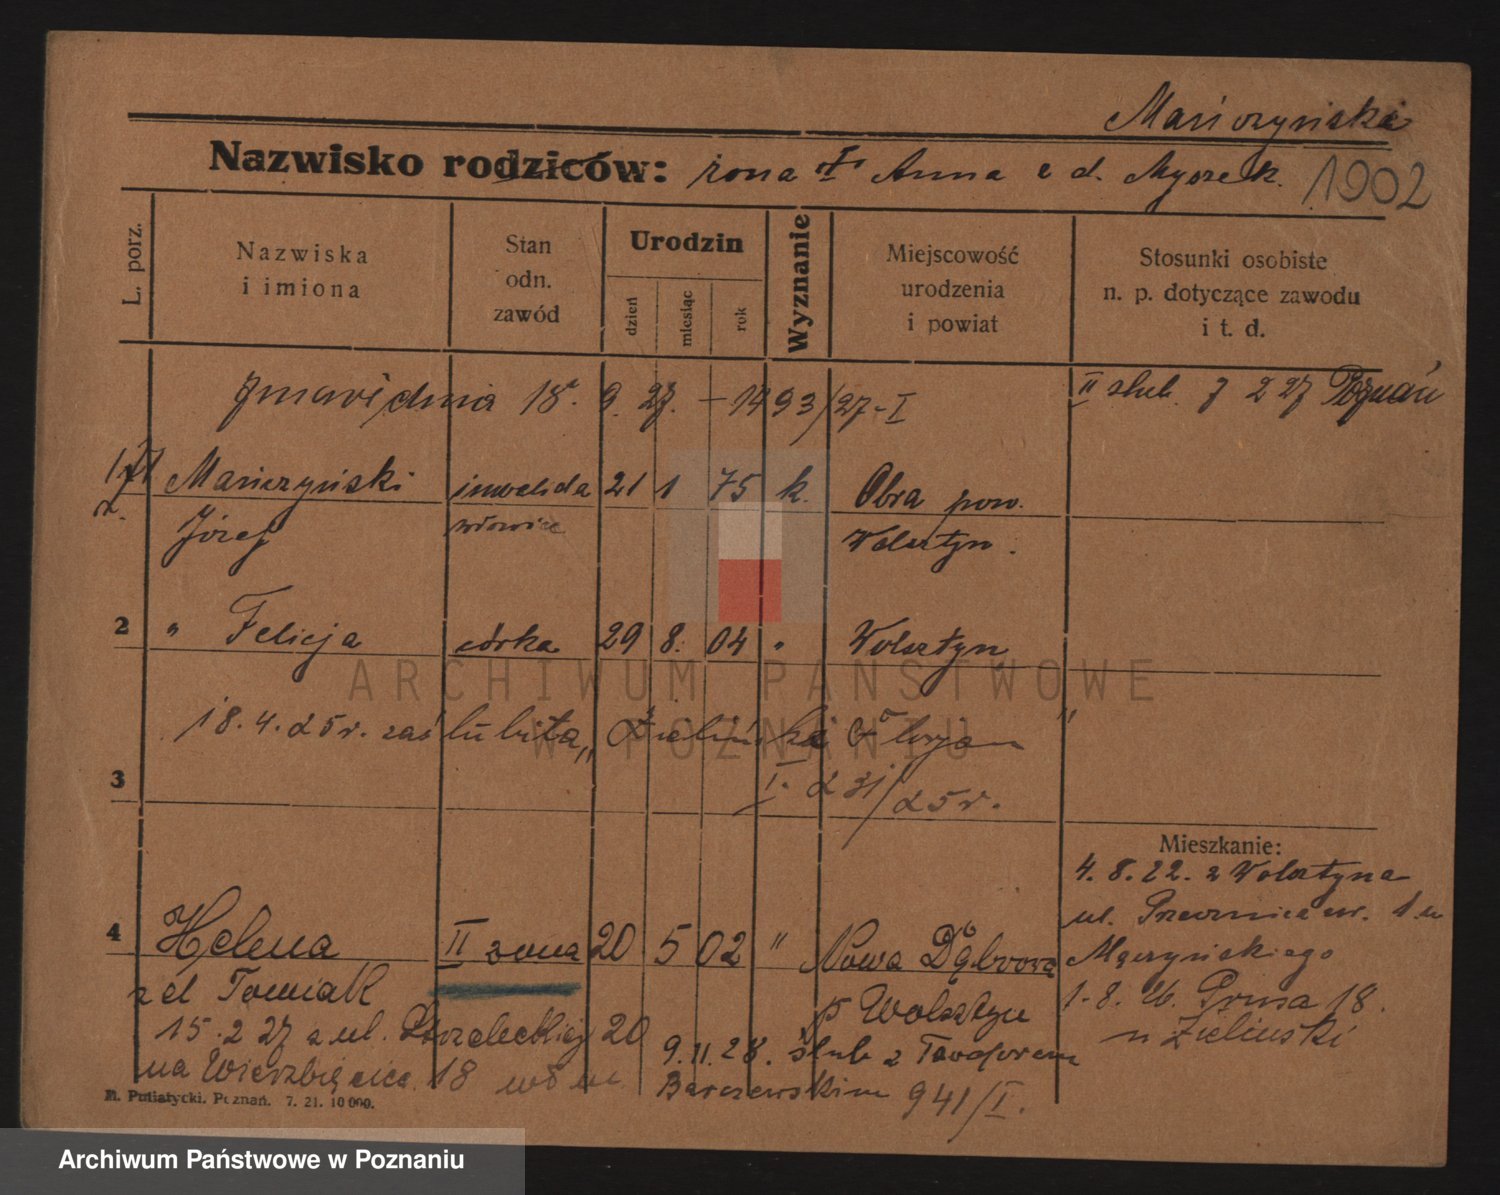 Mańczyński
Nazwisko rodziców: żona I Anna z d. Myszek. 1902
L. porz.
Nazwiska
i imiona
Stan
odn.
zawód
Urodzin
dzień
miesiąc
rok
Wyznanie
Miejscowość
urodzenia
i powiat
Stosunki osobiste
n. p. dotyczące zawodu
i t. d.
18. 9. 27. - 1493/27-I
II ślub. 7 2 27 Poznań
1 Mańczyński inwalida 21 1 75 k. Obra pow.
Józef wdowiec Wolsztyn.
2 " Felicja córka 29 8. 04 " Wolsztyn
18. 4. 25 r. zaślubiła „Zieliński Florjan"
I. 231/25 r.
3
Mieszkanie:
4. 8. 22. z Wolsztyna
ul. 1 u
Mączyńskiego
1. 8. 26. Prusa 18.
u Zieliński
4 Helena II żona 20 5 02 " Nowa Dąbrowa
z d Tomiak p Wolsztyn
15. 2 27 z ul. Strzeleckiej 20
na Wierzbięcice 18
9. 11. 28. ślub z Teodorem
Barczewskim 941/I.
M. Putiatycki. Poznań. 7. 21. 10 000.
ARCHIWUM PAŃSTWOWE
W POZNANIU
Archiwum Państwowe w Poznaniu